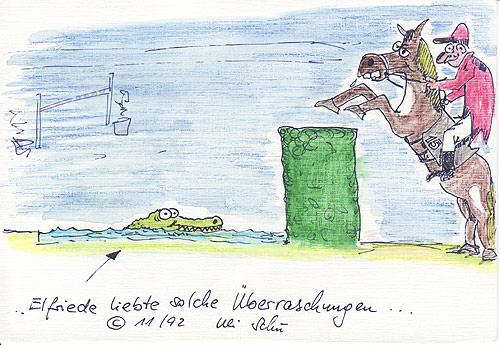 „Elfriede liebte solche Überraschungen...
© 11/92 Uli Schu